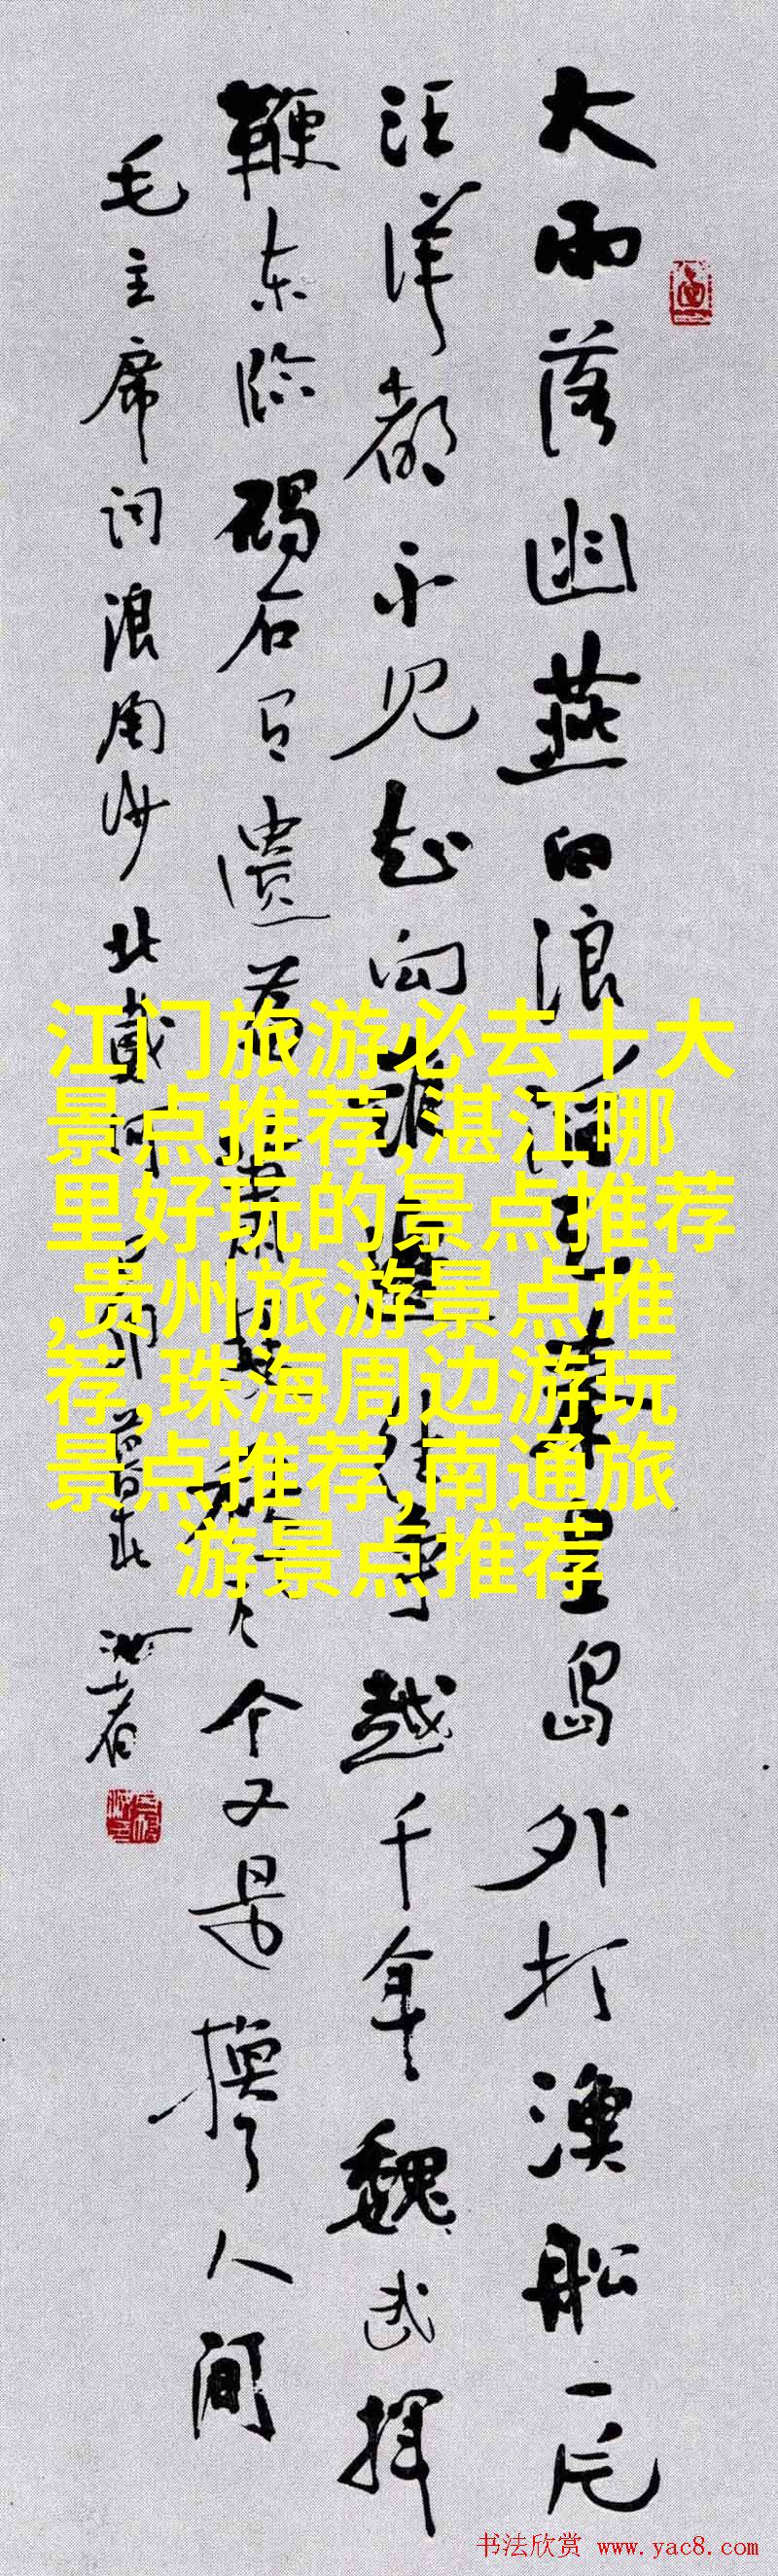 大雨落幽燕白浪滔天秦皇岛外打渔船一片
汪洋都不见知向谁边往事越千年魏武挥
鞭东临碣石有遗篇萧瑟秋风今又是换了人间
毛主席词浪淘沙北戴河
江门旅游必去十大
景点推荐,湛江哪
里好玩的景点推荐
,贵州旅游景点推
荐,珠海周边游玩
景点推荐,南通旅
游景点推荐
书法欣赏 www.yac8.com